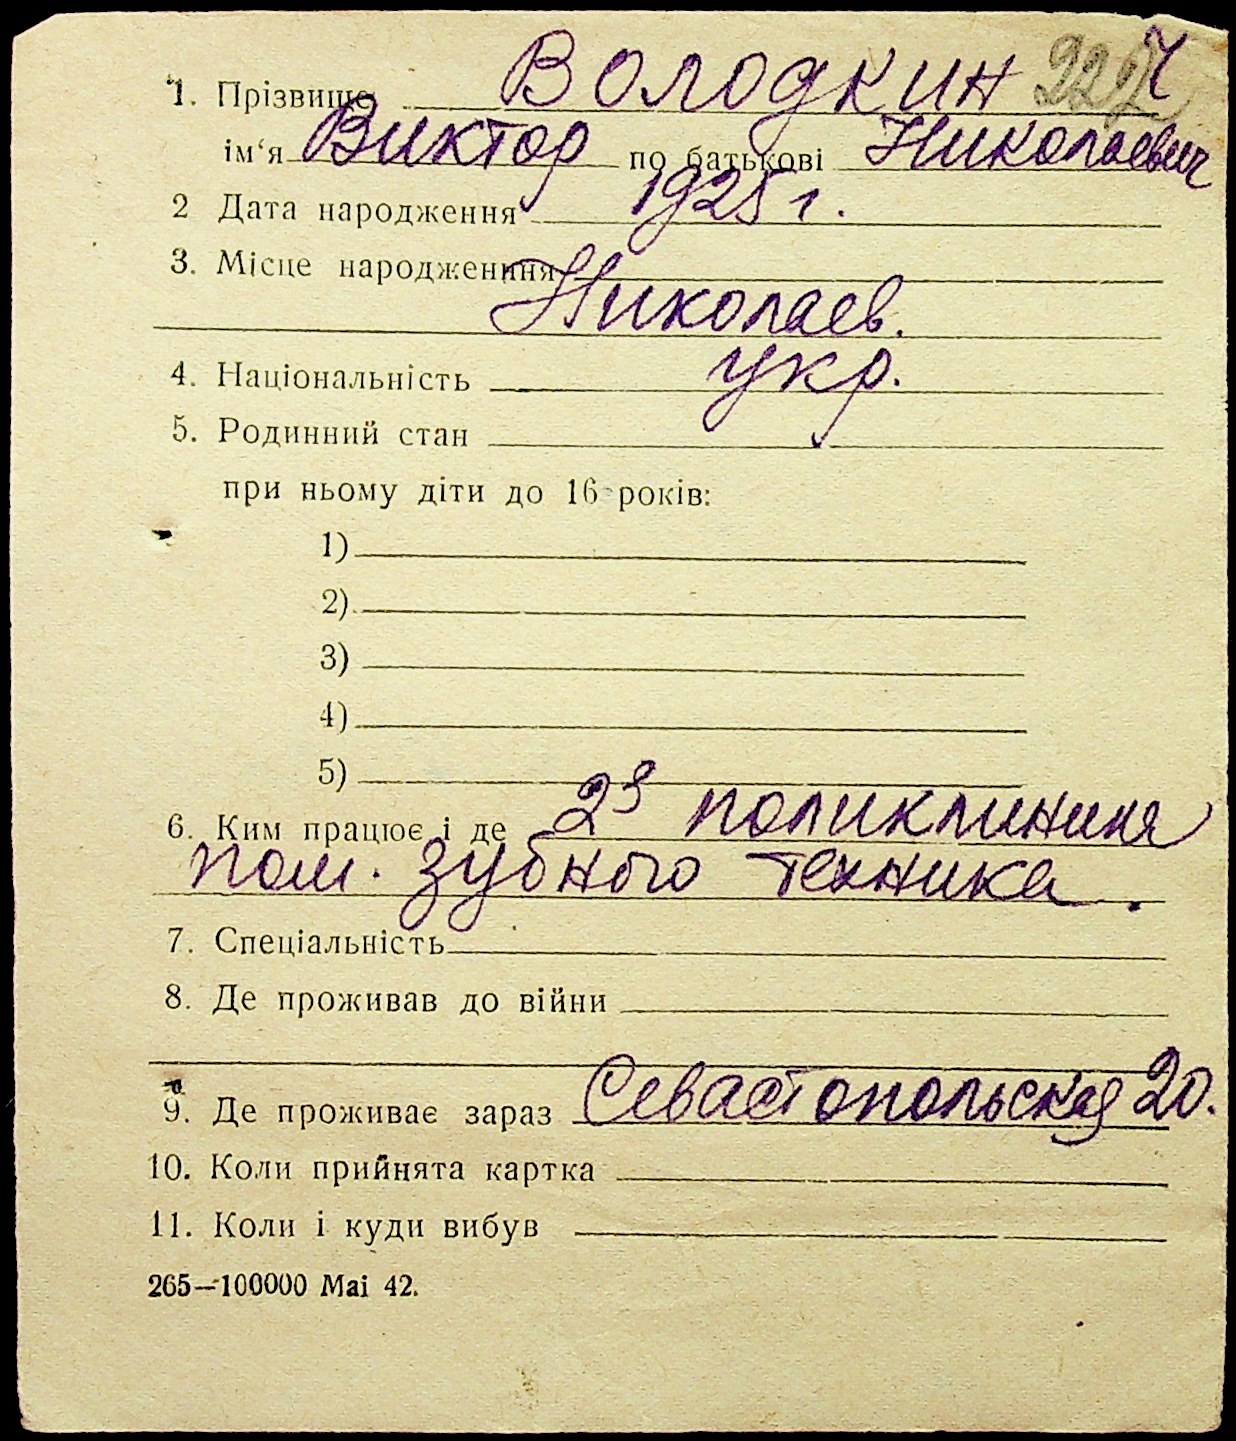 1. Прізвище Володкин
ім‘я Виктор по батькові Николаевич
2 Дата народження 1925 г.
3. Місце народженння
Николаев.
4. Національність укр.
5. Родинний стан
при ньому діти до 16 років:
1)
2)
3)
4)
5)
6. Ким працює і де 2я поликлиника
пом. зубного техника.
7. Спеціальність
8. Де проживав до війни
9. Де проживає зараз Севастопольская 20.
10. Коли прийнята картка
11. Коли і куди вибув
265—100000 Mai 42.